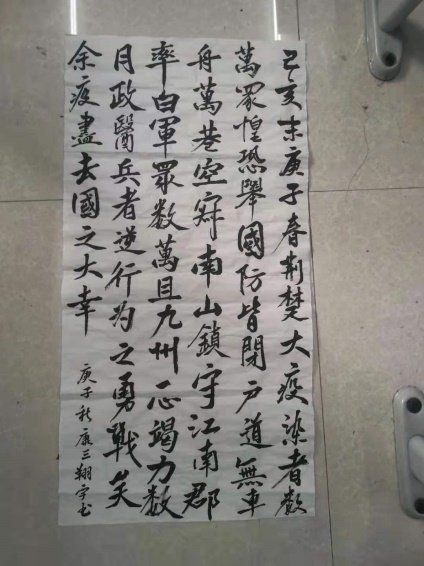 己亥末庚子春荆楚大疫染者数
萬眾惶恐舉國防皆閉户道無車
舟萬巷空寂南山鎖守江南郡
率白軍眾数萬且九州一心竭力数
月政醫兵者逆行为之勇戰矣
余疫盡去國之大幸
庚子秋辰三翔宇书